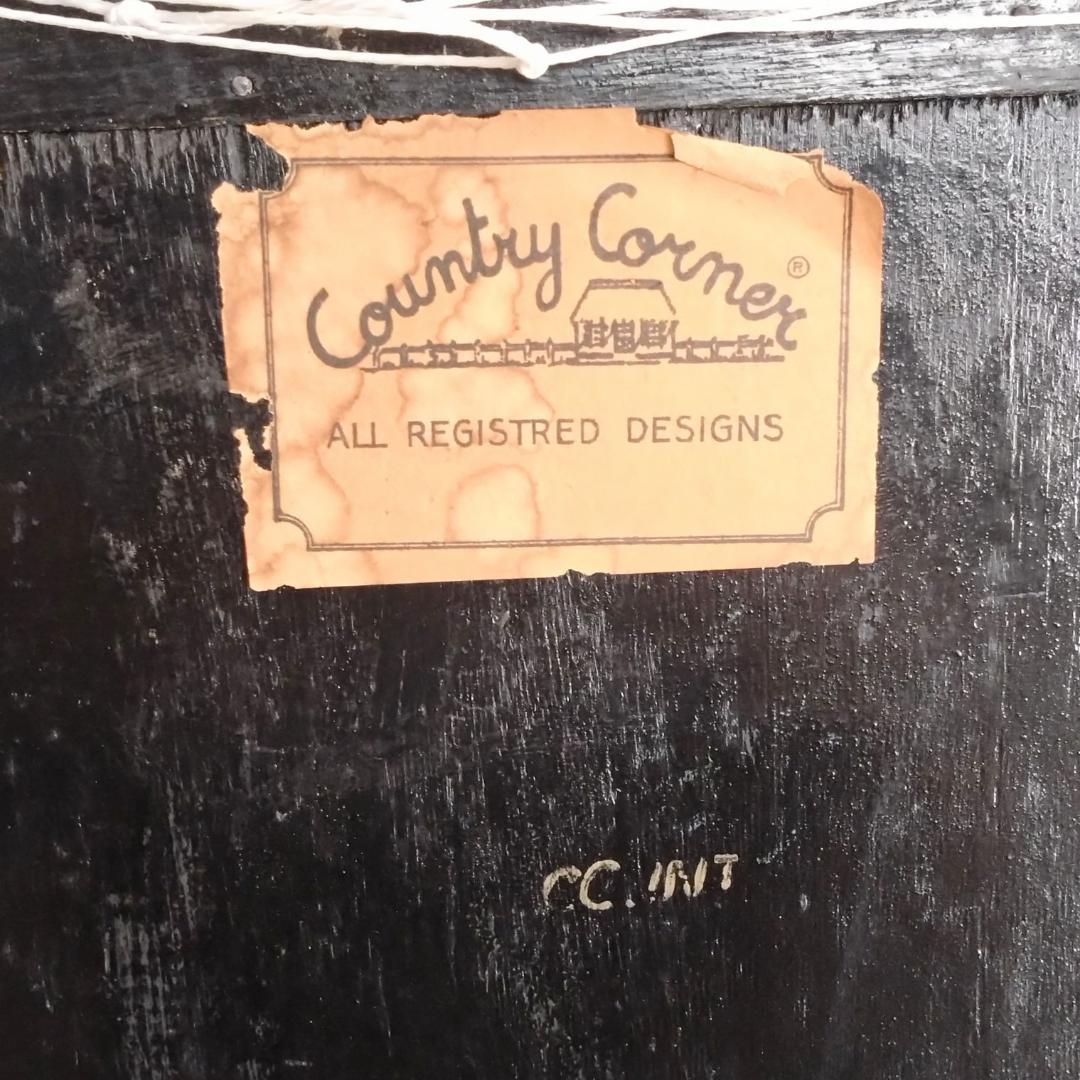 Country Corner ®
ALL REGISTRED DESIGNS
CC.INT